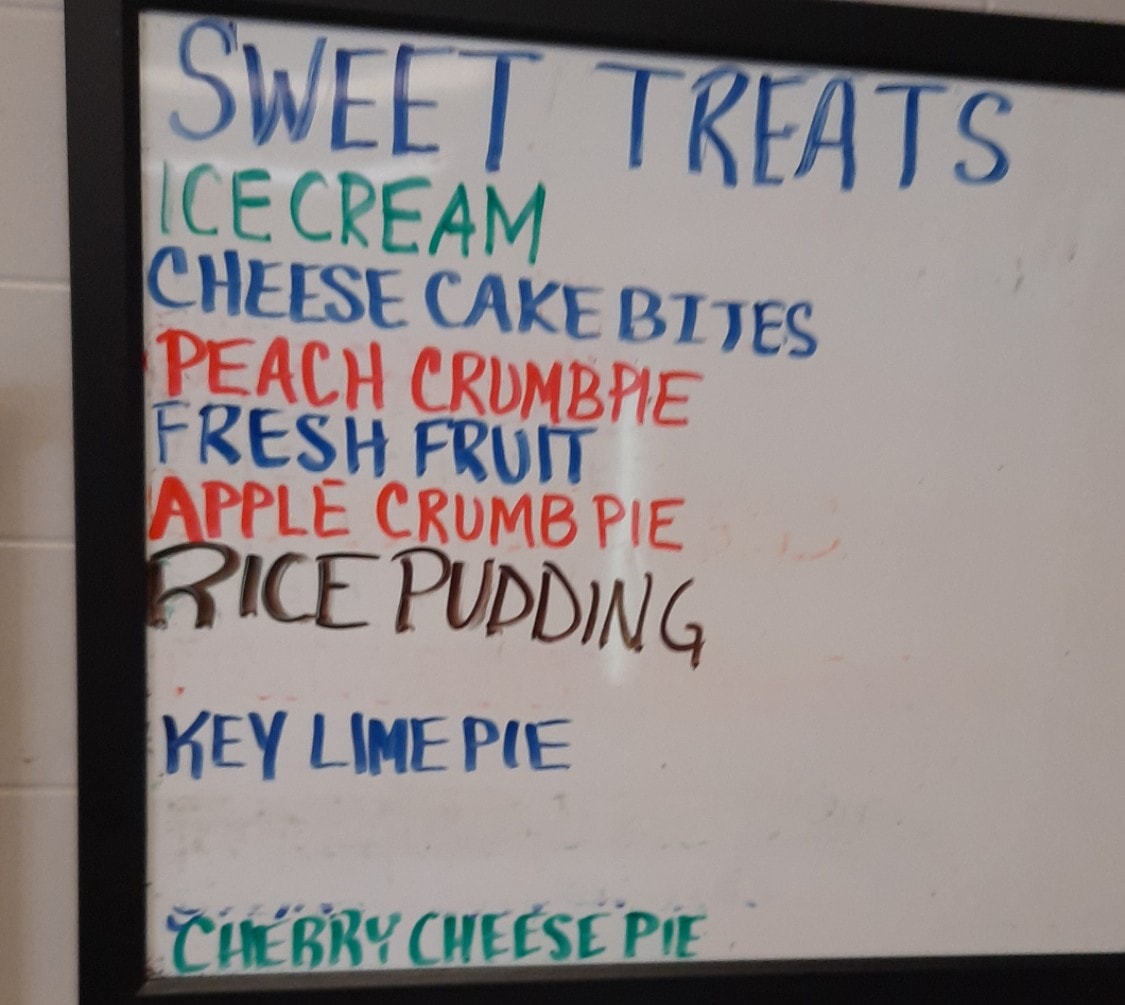 SWEET TREATS
ICE CREAM
CHEESE CAKE BITES
PEACH CRUMB PIE
FRESH FRUIT
APPLE CRUMB PIE
RICE PUDDING
KEY LIME PIE
CHERRY CHEESE PIE